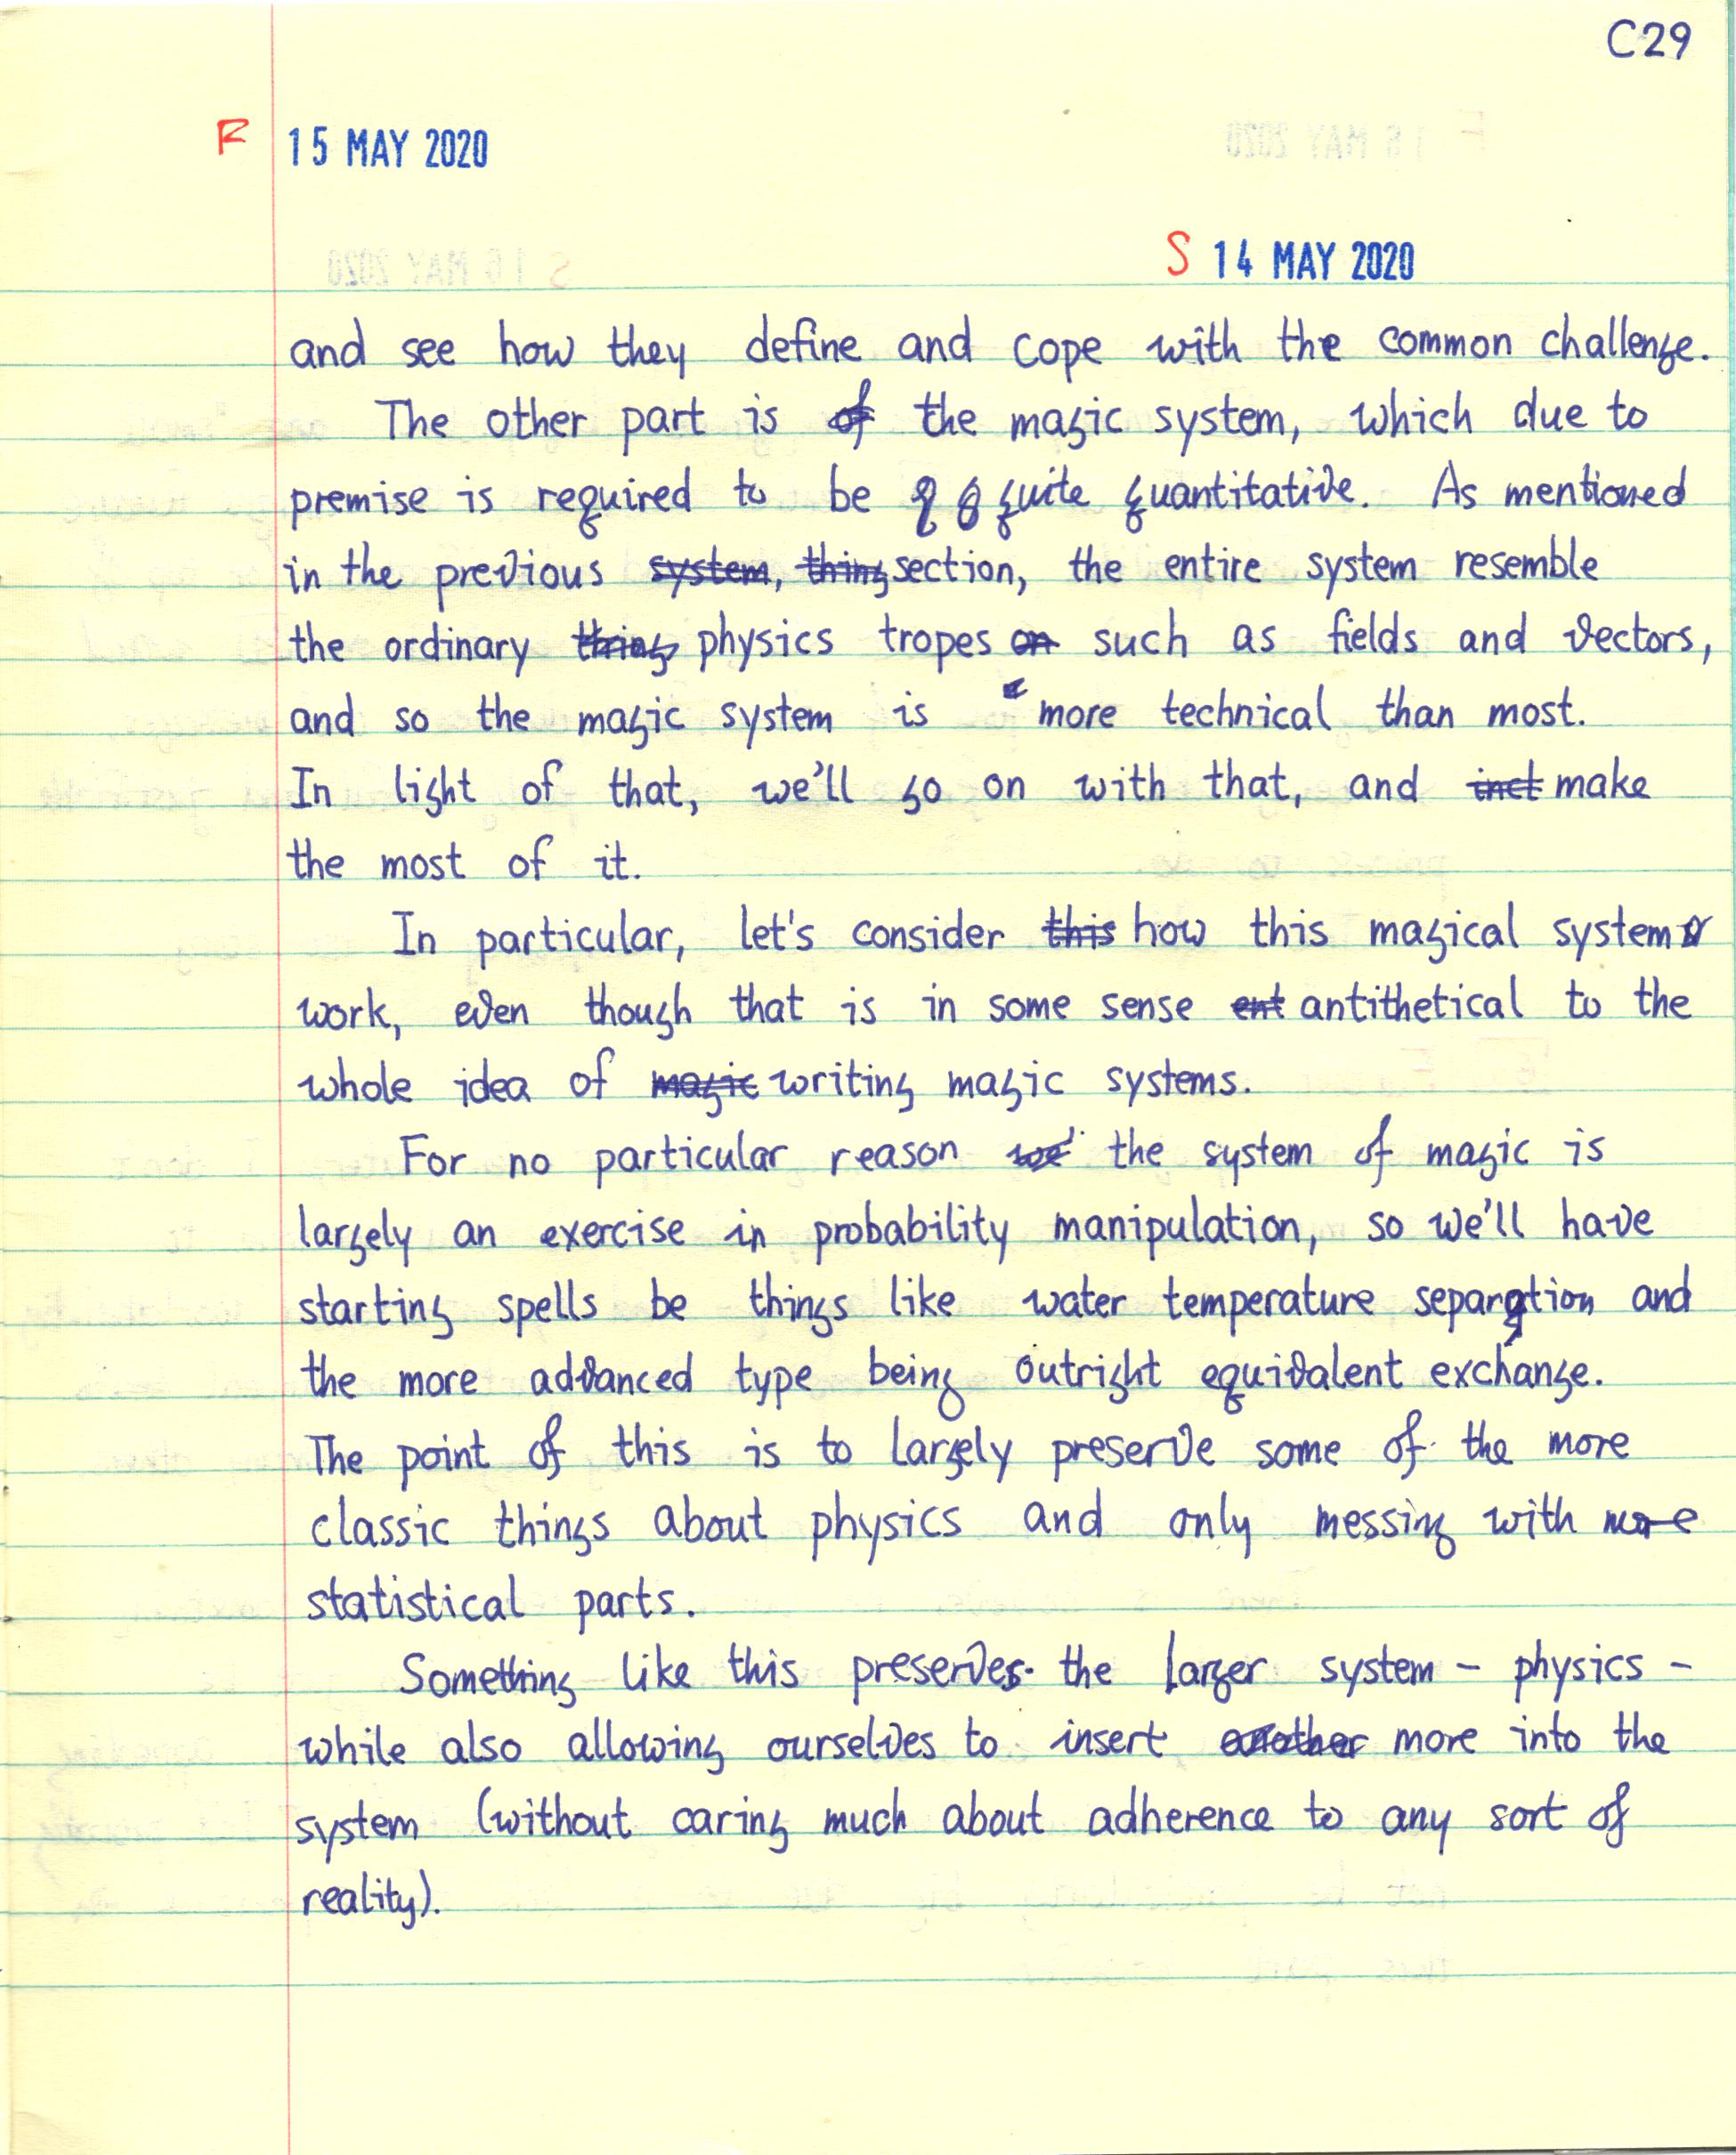 C29
F 15 MAY 2020
S 14 MAY 2020
and see how they define and cope with the common challenge.
The other part is of the magic system, which due to
premise is required to be q q quite quantitative. As mentioned
in the previous system, thing section, the entire system resemble
the ordinary thing physics tropes on such as fields and vectors,
and so the magic system is more technical than most.
In light of that, we'll go on with that, and inct make
the most of it.
In particular, let's consider this how this magical system
work, even though that is in some sense ent antithetical to the
whole idea of magic writing magic systems.
For no particular reason we' the system of magic is
largely an exercise in probability manipulation, so we'll have
starting spells be things like water temperature separation and
the more advanced type being outright equivalent exchange.
The point of this is to largely preserve some of the more
classic things about physics and only messing with more
statistical parts.
Something like this preserves the larger system - physics -
while also allowing ourselves to insert another more into the
system (without caring much about adherence to any sort of
reality).